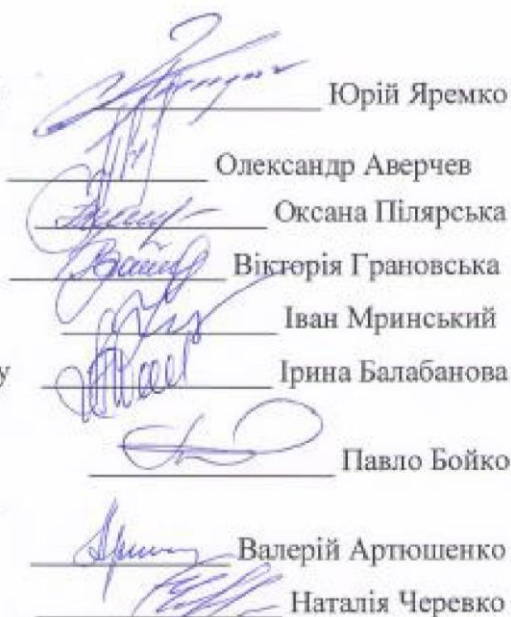 Юрій Яремко
Олександр Аверчев
Оксана Пілярська
Вікторія Грановська
Іван Мринський
у Ірина Балабанова
Павло Бойко
Валерій Артюшенко
Наталія Черевко